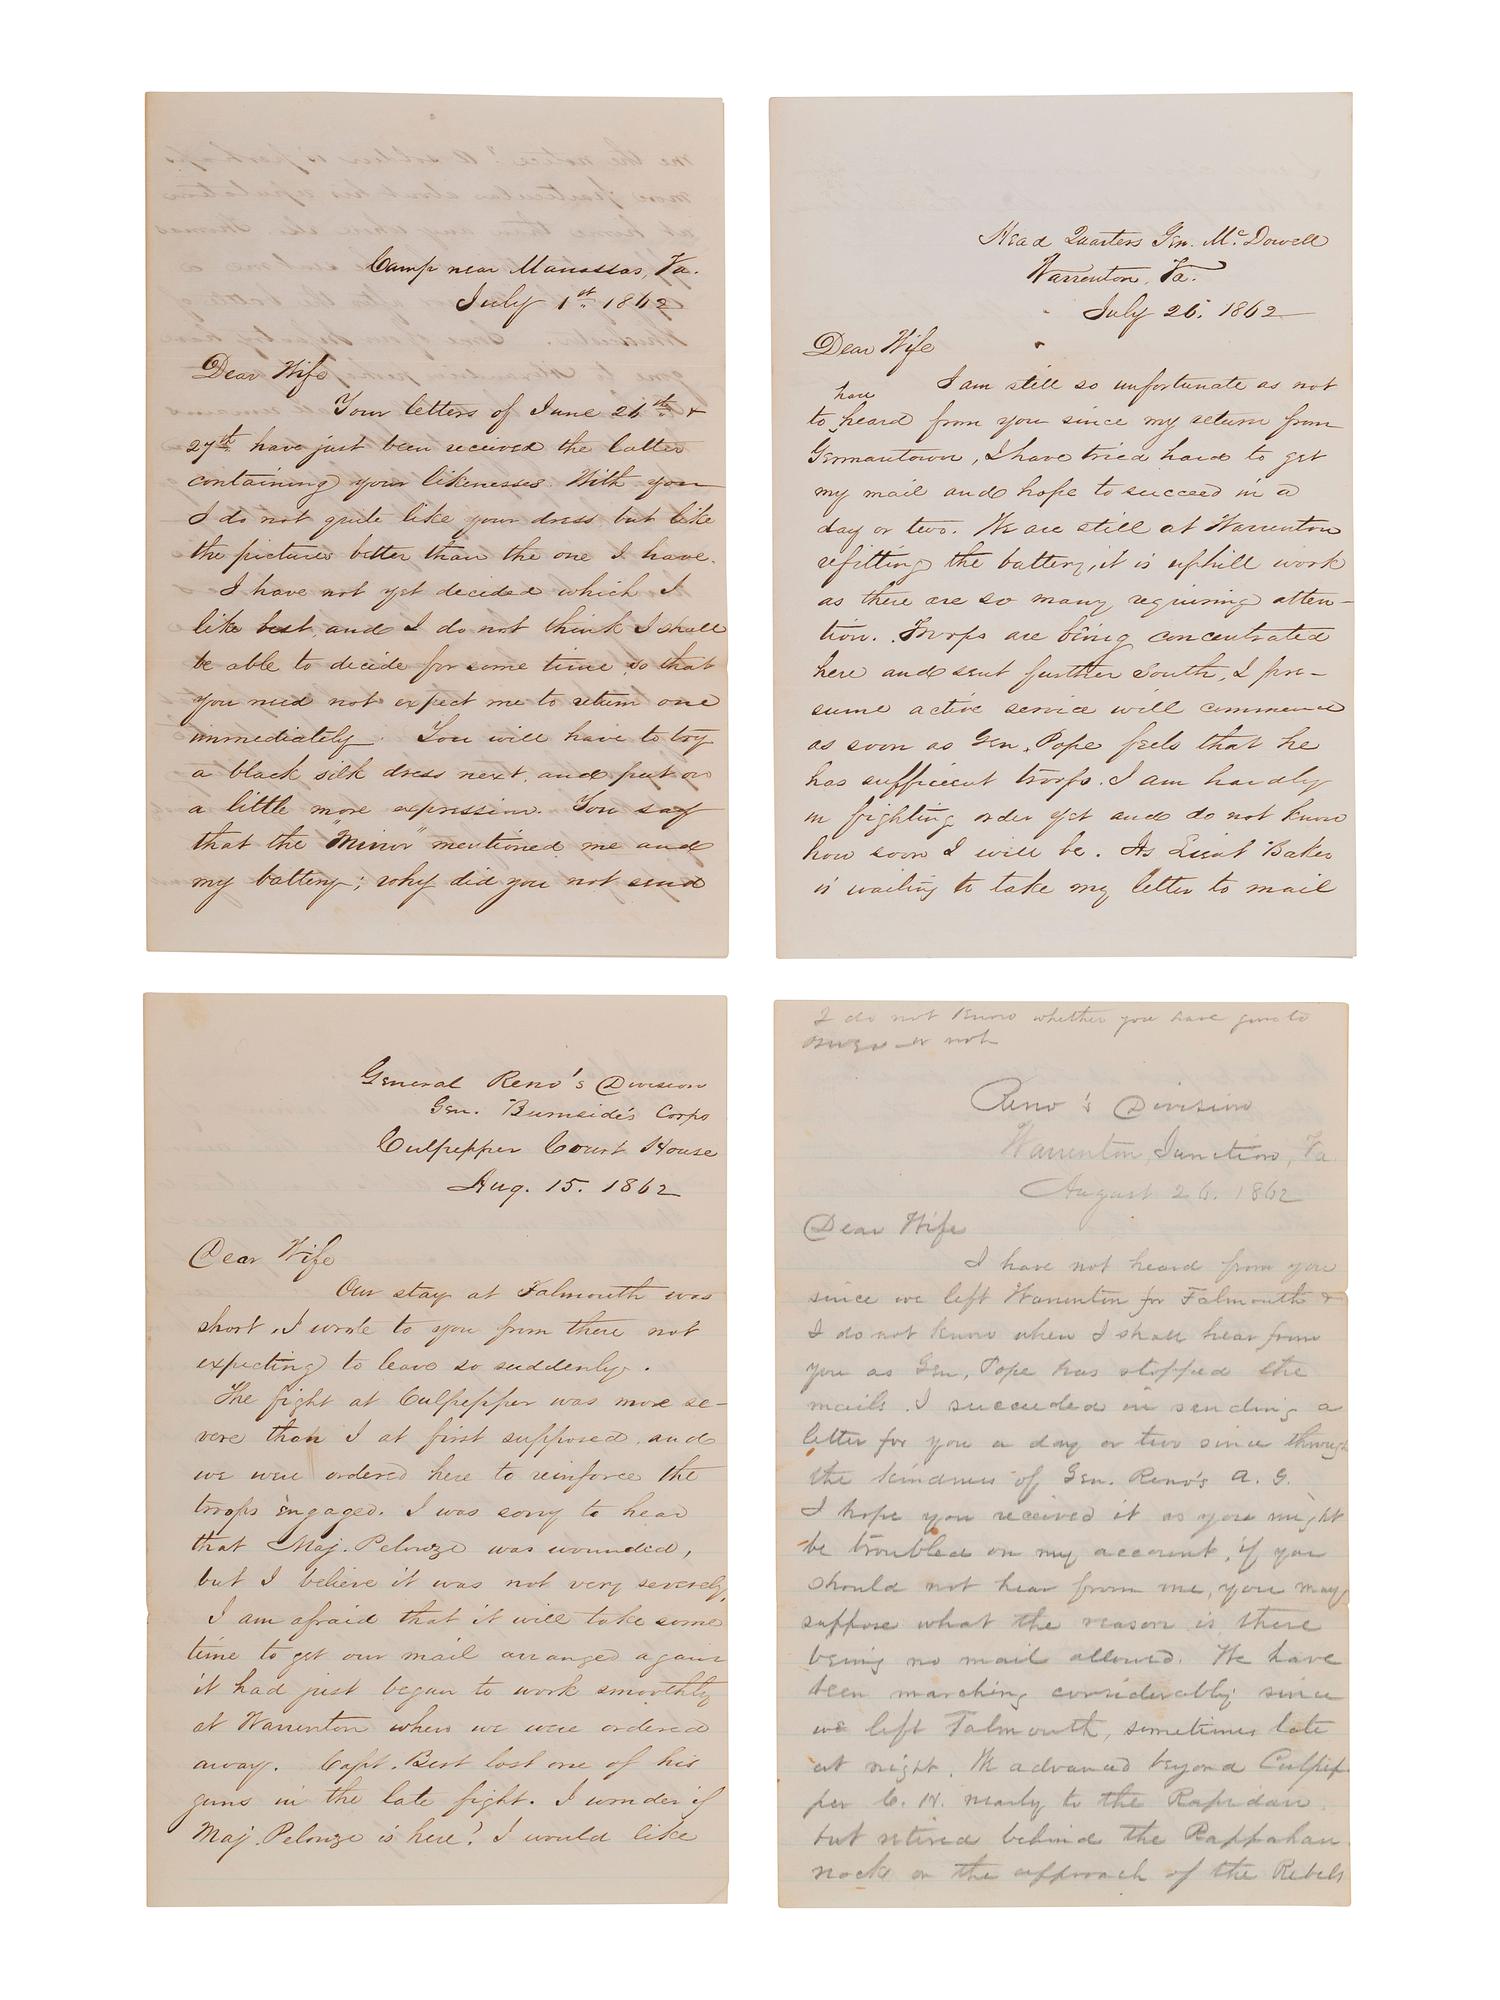 Camp near Manassas, Va.
July 1st 1862
Dear Wife
Your letters of June 26th &
27th have just been received the latter
containing your likenesses. With you
I do not quite like your dress but like
the pictures better than the one I have.
I have not yet decided which I
like best, and I do not think I shall
be able to decide for some time, so that
you need not expect me to return one
immediately. You will have to try
a black silk dress next, and put on
a little more expression. You say
that the "Mirror" mentioned me and
my battery; why did you not send
Head Quarters Gen. McDowell
Warrenton, Va.
July 26. 1862
Dear Wife
I am still so unfortunate as not
have
to heard from you since my return from
Germantown, I have tried hard to get
my mail and hope to succeed in a
day or two. We are still at Warrenton
refitting the battery, it is uphill work
as there are so many requiring atten-
tion. Troops are being concentrated
here and sent further South, I pre-
sume active service will commence
as soon as Gen. Pope feels that he
has sufficient troops. I am hardly
in fighting order yet and do not know
how soon I will be. As Lieut Baker
is waiting to take my letter to mail
General Reno's Division
Gen. Burnside's Corps
Culpepper Court House
Aug. 15. 1862
Dear Wife
Our stay at Falmouth was
short, I wrote to you from there not
expecting to leave so suddenly.
The fight at Culpepper was more se-
vere than I at first supposed, and
we were ordered here to reinforce the
troops engaged. I was sorry to hear
that Maj. Pelouze was wounded,
but I believe it was not very severely,
I am afraid that it will take some
time to get our mail arranged again
it had just begun to work smoothly
at Warrenton when we were ordered
away. Capt. Best lost one of his
guns in the late fight. I wonder if
Maj. Pelouze is here? I would like
I do not know whether you have gone to
or not
Reno's Division
Warrenton, Junction, Va
August 26. 1862
Dear Wife
I have not heard from you
since we left Warrenton for Falmouth &
I do not know when I shall hear from
you as Gen. Pope has stopped the
mails. I succeeded in sending a
letter for you a day or two since through
the kindness of Gen. Reno's A. G.
I hope you received it as you might
be troubled on my account, if you
should not hear from me, you may
suppose what the reason is there
being no mail allowed. We have
been marching considerably since
we left Falmouth, sometimes late
at night. We advanced beyond Culpep
per C. H. nearly to the Rapidan,
but retired behind the Rappahan
nock on the approach of the Rebels